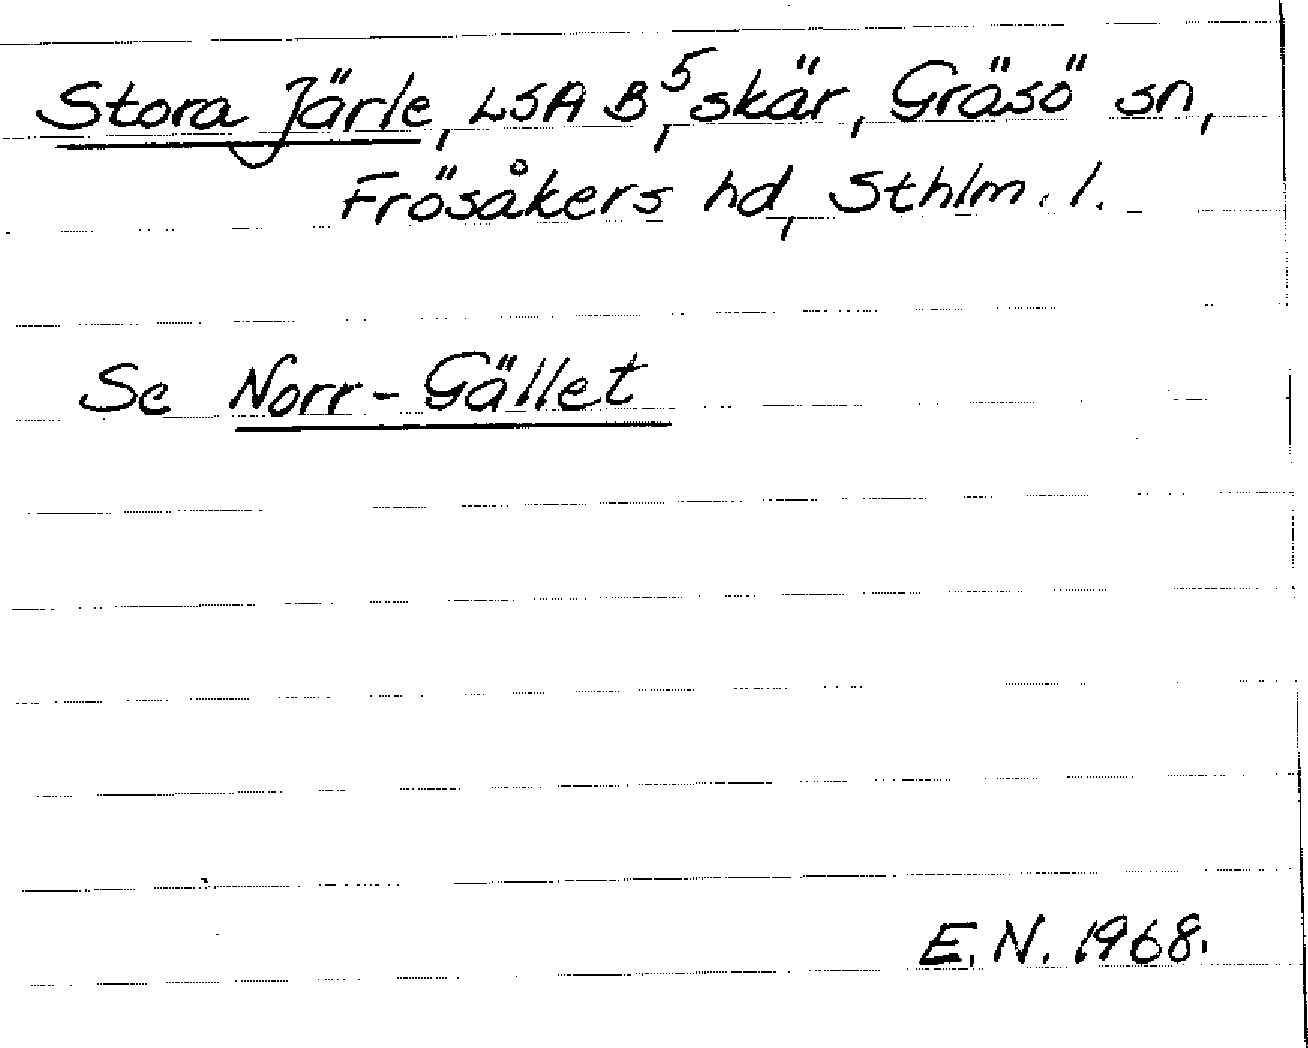 Stora Järle, LSA B⁵, skär, Gräsö sn,
Frösåkers hd, Sthlm. l.
Se Norr-Gället
E.N. 1968.